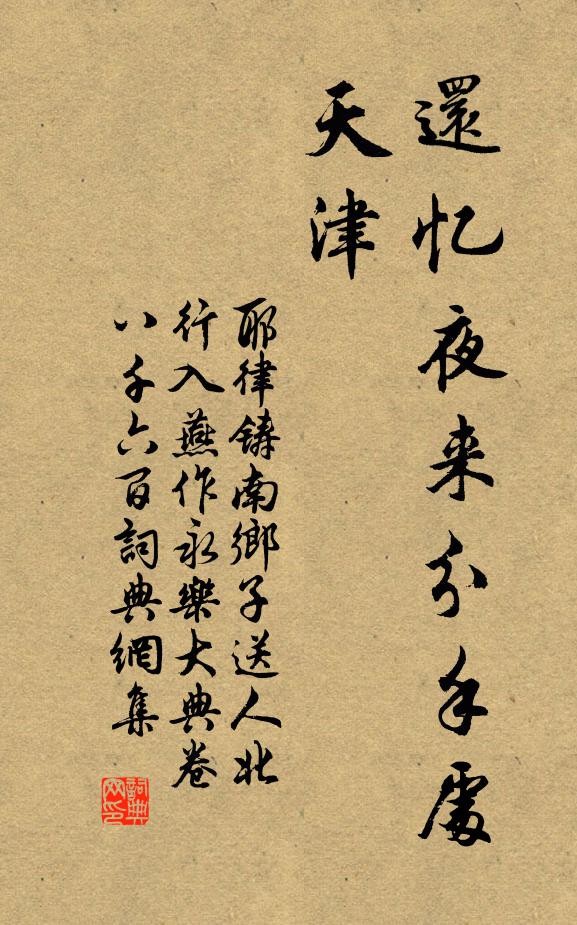 還忆夜来分手處
天津
耶律鋳南鄉子送人北
行入燕作永樂大典卷
八千六百詞典網集
詞典
网印